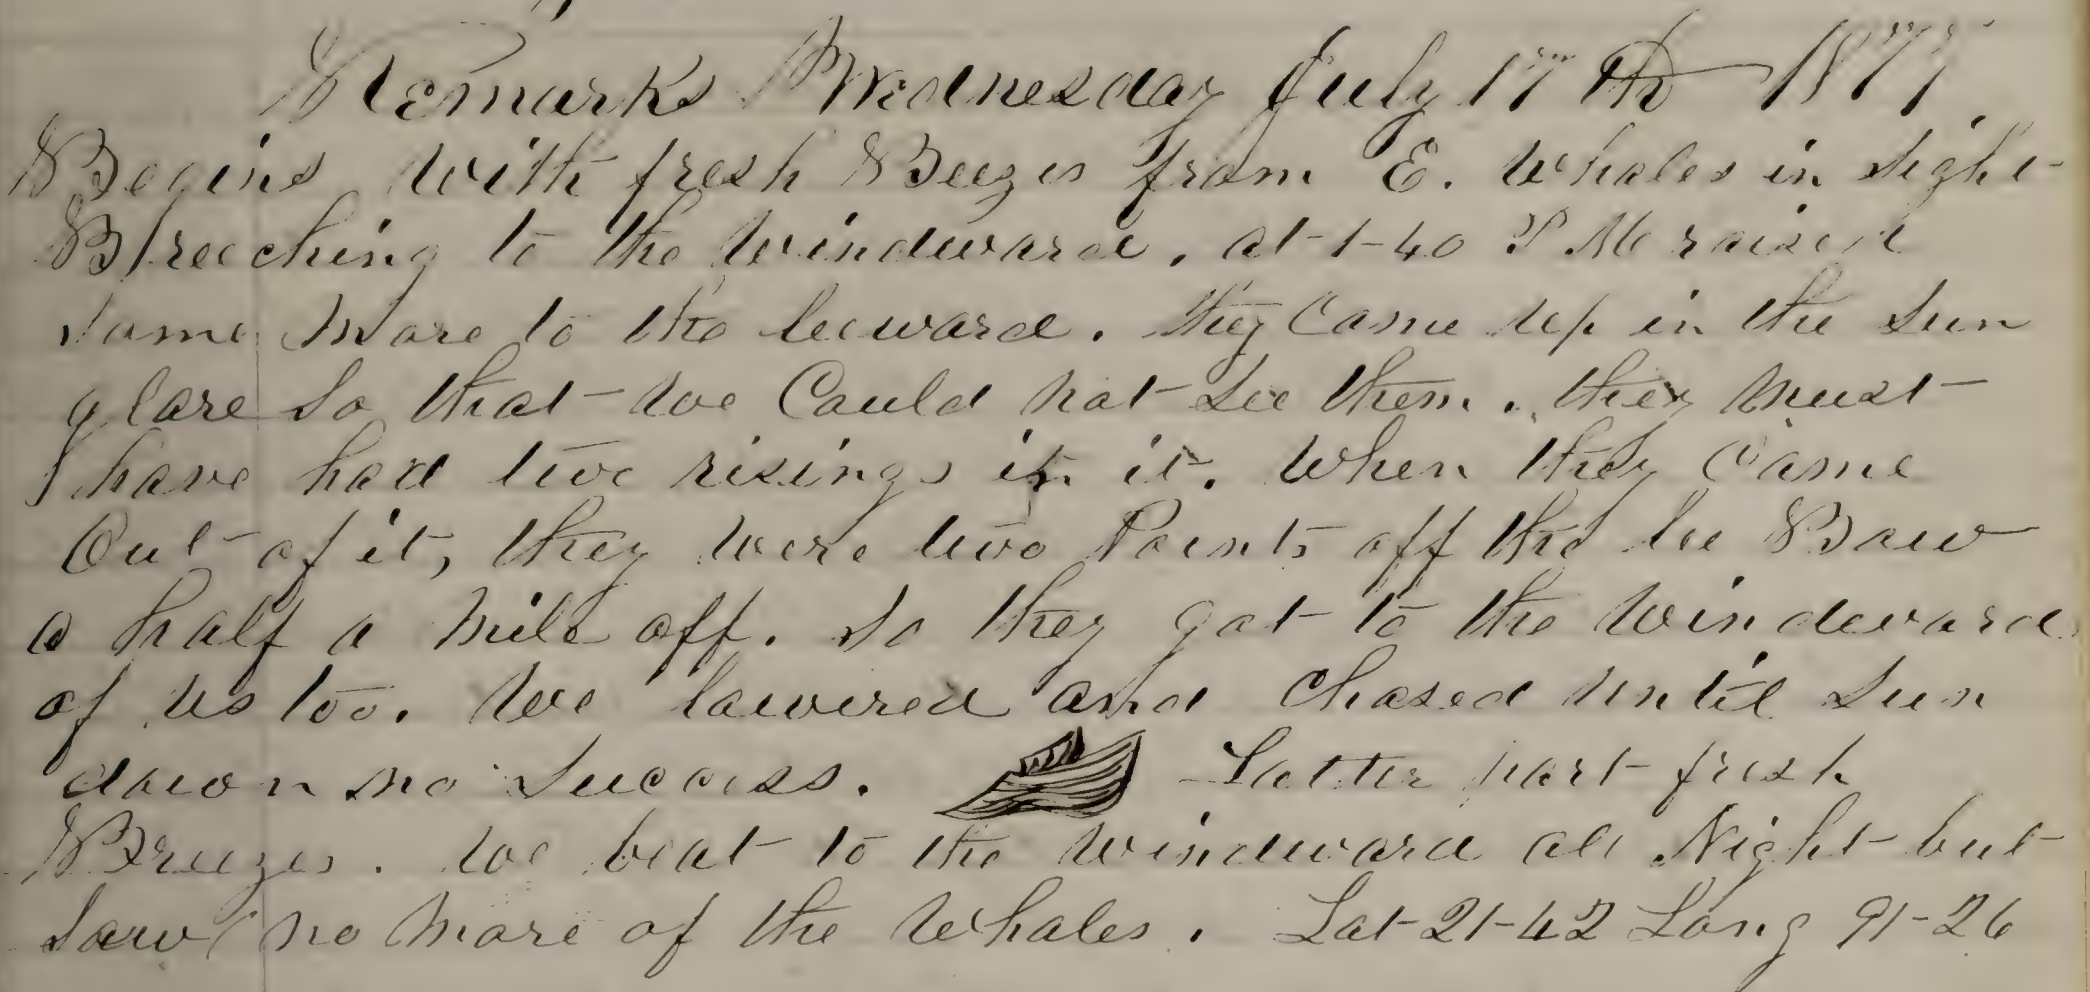 Remarks Wednesday July 17th 1877
Begins with fresh Beezes from E. Whales in sight
Breeching to the Windward, at 1-40 P.M. raised
some more to the leeward. they Came up in the Sun
glare So that we Could not See them. they must
have had two risings in it. When they Came
Out of it, they were two Points off the lee Bow
a half a mile off. So they got to the Windward
of us too. We lowered and Chased until Sun
down no Success. Latter part fresh
Breezes. We beat to the Windward all Night but
Saw no more of the Whales. Lat 21-42 Long 91-26